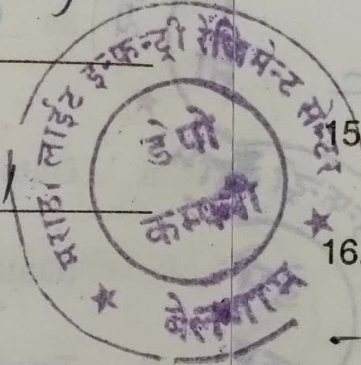 मराठा लाईट इन्फन्ट्री रेजिमेन्ट सेन्टर
डेपो
कम्पनी
बेलगाम
15
16